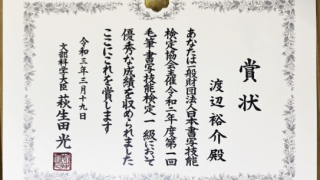 賞状
渡辺裕介殿
あなたは一般財団法人日本書写技能
検定協会主催令和二年度第一回
毛筆書写技能検定一級において
優秀な成績を収められました
ここにこれを賞します
令和三年三月十九日
文部科学大臣 萩生田光一